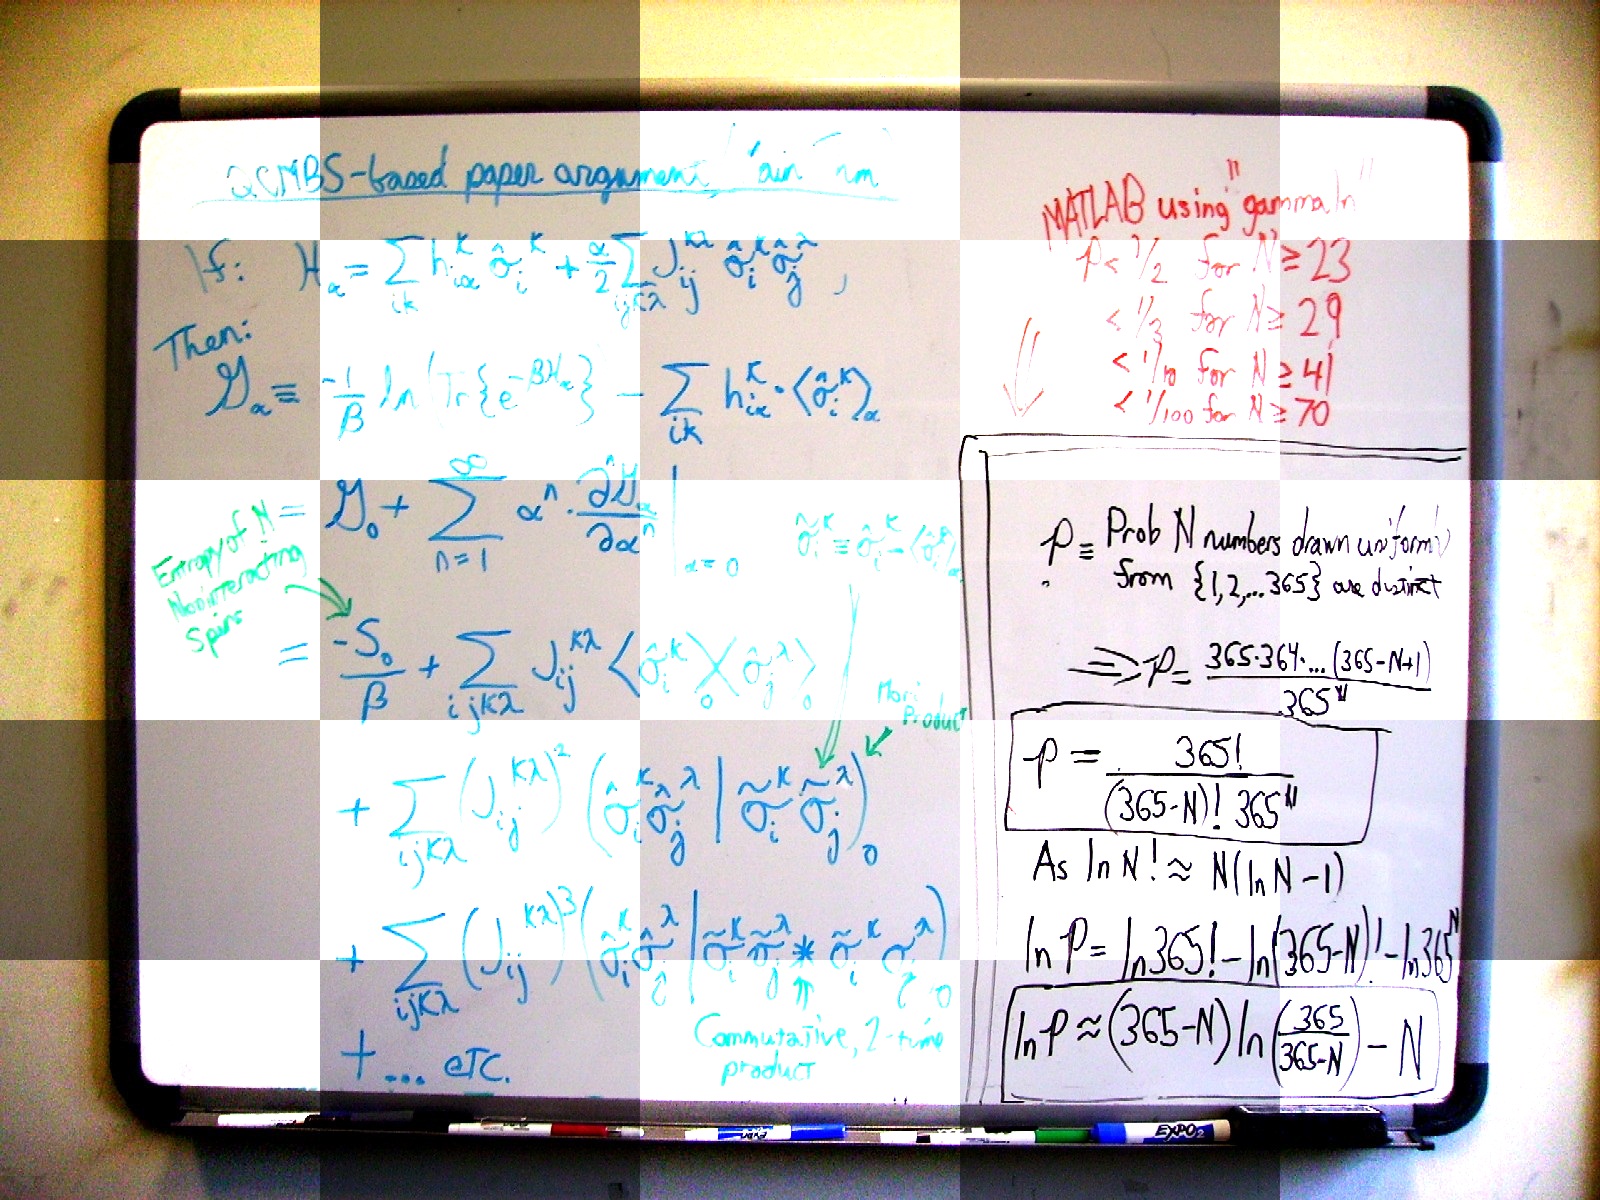 QCMBS-based paper argument,
If: H_α = Σ_{ik} h_{iα}^κ σ̂_i^κ + α/2 Σ_{ijκλ} J_{ij}^{κλ} σ̂_i^κ σ̂_j^λ ,
Then:
𝒢_α ≡ -1/β ln Tr{e^{-βH_α}} - Σ_{ik} h_{iα}^κ · ⟨σ̂_i^κ⟩_α
= 𝒢_0 + Σ_{n=1}^∞ α^n · ∂𝒢_α/∂α^n |_{α=0}
σ̃_i^κ ≡ σ̂_i^κ - ⟨σ̂_i^κ⟩
Entropy of N
Noninteracting
Spins
= -S_0/β + Σ_{ijκλ} J_{ij}^{κλ} ⟨σ̂_i^κ⟩_0 ⟨σ̂_j^λ⟩_0
Mori
Product
+ Σ_{ijκλ} (J_{ij}^{κλ})^2 (σ̂_i^κ σ̂_j^λ | σ̃_i^κ σ̃_j^λ)_0
+ Σ_{ijκλ} (J_{ij}^{κλ})^3 (σ̂_i^κ σ̂_j^λ | σ̃_i^κ σ̃_j^λ * σ̃_i^κ σ̃_j^λ)_0
⇑
Commutative, 2-time
product
+ ... etc.
MATLAB using "gammaln"
p < 1/2 for N ≥ 23
< 1/3 for N ≥ 29
< 1/10 for N ≥ 41
< 1/100 for N ≥ 70
p ≡ Prob N numbers drawn uniformly
from {1,2,...365} are distinct
⇒ p = 365·364·...(365-N+1) / 365^N
p = 365! / (365-N)! 365^N
As ln N! ≈ N(ln N - 1)
ln p = ln 365! - ln(365-N)! - ln 365^N
ln p ≈ (365-N) ln(365/(365-N)) - N
EXPO 2